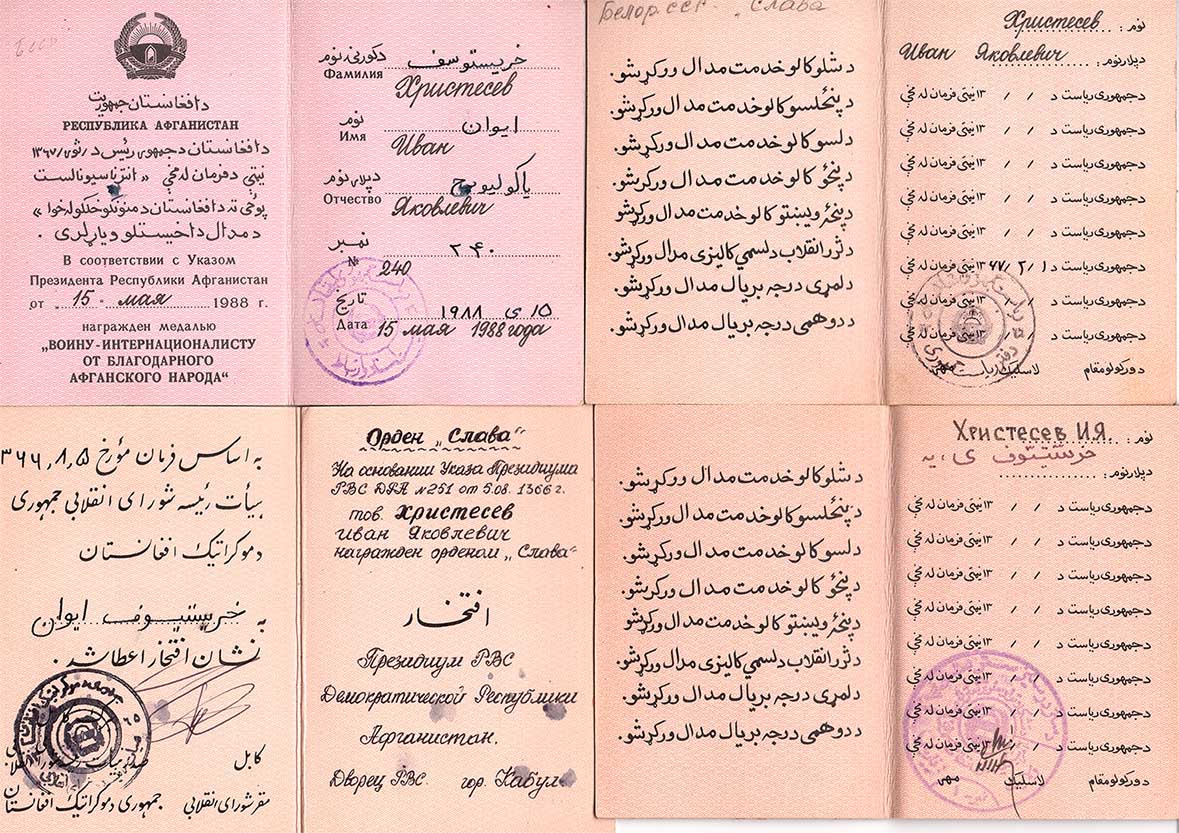 د افغانستان جمهوریت
РЕСПУБЛИКА АФГАНИСТАН
د افغانستان د جمهوری رئیس د / ثور / ۱۳۶۷
نېټې د فرمان له مخې « انترناسیونالست
پوځي ته د افغانستان د منونکو خلکو له خوا »
د مدال د اخیستلو ویاړ لري .
В соответствии с Указом
Президента Республики Афганистан
от 15 мая 1988 г.
награжден медалью
„ВОИНУ-ИНТЕРНАЦИОНАЛИСТУ
ОТ БЛАГОДАРНОГО
АФГАНСКОГО НАРОДА“
د کورنی نوم خریستوسف
Фамилия Христесев
نوم ایوان
Имя Иван
د پلار نوم یاکولیویچ
Отчество Яковлевич
نمبر ۲۴۰
№ 240
تاریخ ۱۵ می ۱۹۸۸
Дата 15 мая 1988 года
Белор. ССР „Слава
د شلو کالو خدمت مدال ورکړ شو.
د پنځلسو کالو خدمت مدال ورکړ شو.
د لسو کالو خدمت مدال ورکړ شو.
د پنځو کالو خدمت مدال ورکړ شو.
د پنځه ویشتو کالو خدمت مدال ورکړ شو
د ثور انقلاب د لسمي کالیزی مدال ورکړ شو.
د لمړی درجه بریال مدال ورکړ شو.
د دوهمی درجه بریال مدال ورکړ شو.
نوم : Христесев
د پلار نوم : Иван Яковлевич
د جمهوری ریاست د / / ۱۳ نېټې فرمان له مخې
د جمهوری ریاست د / / ۱۳ نېټې فرمان له مخې
د جمهوری ریاست د / / ۱۳ نېټې فرمان له مخې
د جمهوری ریاست د / / ۱۳ نېټې فرمان له مخې
د جمهوری ریاست د / / ۱۳ نېټې فرمان له مخې
د جمهوری ریاست د ۱ / ۲ / ۱۳۶۷ نېټې فرمان له مخې
د جمهوری ریاست د / / ۱۳ نېټې فرمان له مخې
د جمهوری ریاست د / / ۱۳ نېټې فرمان له مخې
د ورکولو مقام لاسلیک
به اساس فرمان مؤرخ ۱۳۶۶,۸,۵
هیأت رئیسه شورای انقلابی جمهوری
دموکراتیک افغانستان
به خریستیوف ایوان
نشان افتخار اعطا شد .
کابل
مقر شورای انقلابی جمهوری دموکراتیک افغانستان
Орден „Слава“
На основании Указа Президиума
РВС ДРА №251 от 5.08. 1366 г.
тов. Христесев
Иван Яковлевич
награжден орденом „Слава“
افتخار
Президиум РВС
Демократической Республики
Афганистан.
Дворец РВС гор. Кабул.
د شلو کالو خدمت مدال ورکړ شو.
د پنځلسو کالو خدمت مدال ورکړ شو.
د لسو کالو خدمت مدال ورکړ شو.
د پنځو کالو خدمت مدال ورکړ شو.
د پنځه ویشتو کالو خدمت مدال ورکړ شو
د ثور انقلاب د لسمي کالیزی مدال ورکړ شو.
د لمړی درجه بریال مدال ورکړ شو.
د دوهمی درجه بریال مدال ورکړ شو.
نوم : Христесев И.Я.
خرستیتوف ی ، یه
د پلار نوم :
د جمهوری ریاست د / / ۱۳ نېټې فرمان له مخې
د جمهوری ریاست د / / ۱۳ نېټې فرمان له مخې
د جمهوری ریاست د / / ۱۳ نېټې فرمان له مخې
د جمهوری ریاست د / / ۱۳ نېټې فرمان له مخې
د جمهوری ریاست د / / ۱۳ نېټې فرمان له مخې
د جمهوری ریاست د / / ۱۳ نېټې فرمان له مخې
د جمهوری ریاست د / / ۱۳ نېټې فرمان له مخې
د جمهوری ریاست د / / ۱۳ نېټې فرمان له مخې
د ورکولو مقام لاسلیک مهر